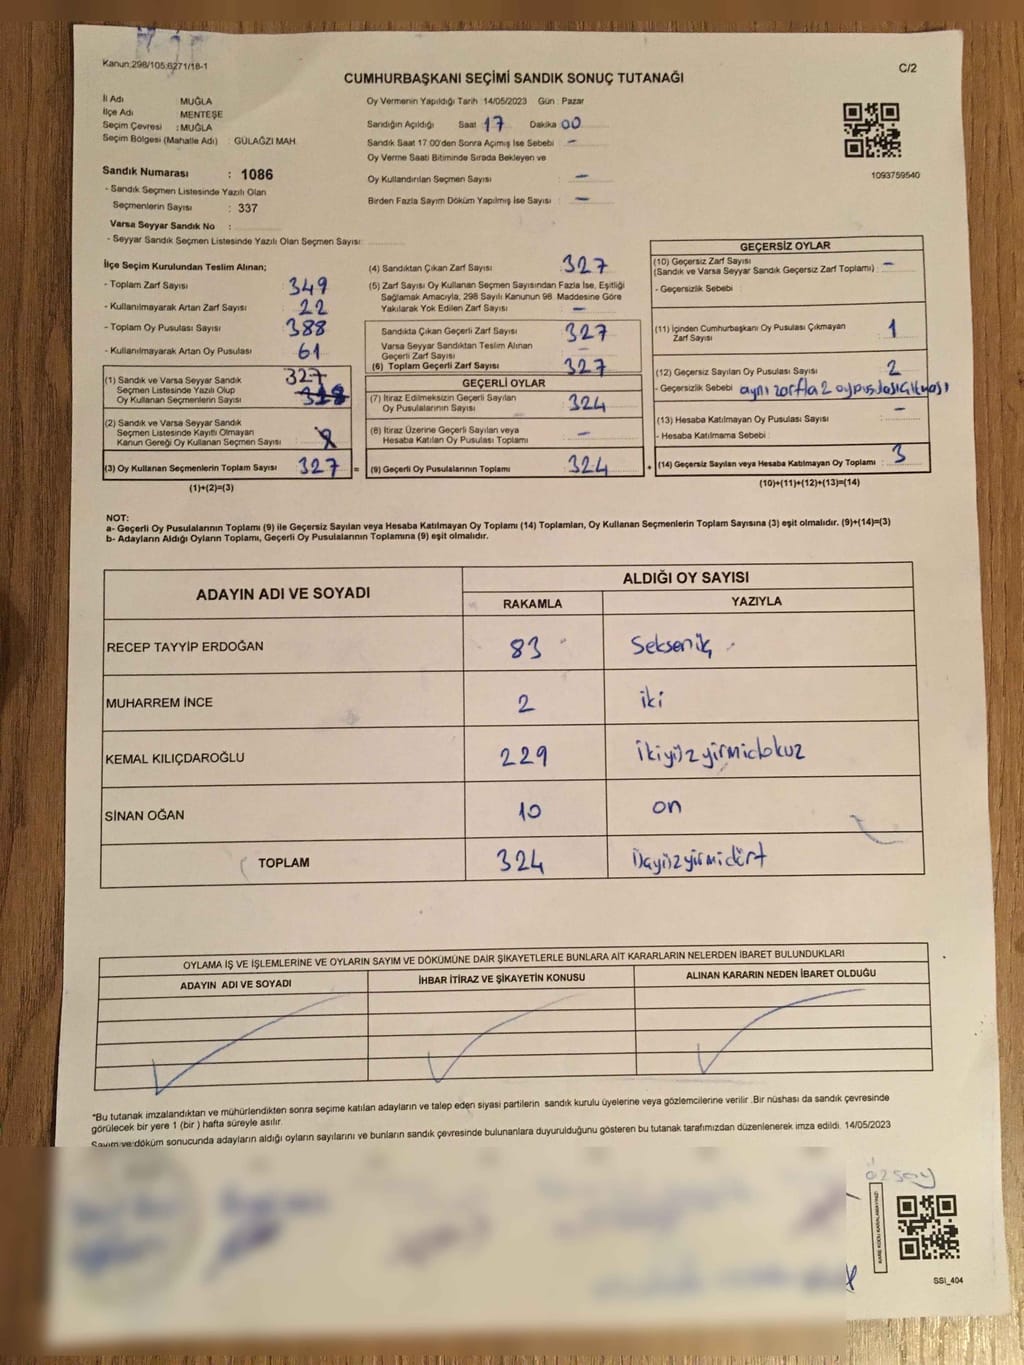 Kanun:298/105;6271/18-1
C/2
CUMHURBAŞKANI SEÇİMİ SANDIK SONUÇ TUTANAĞI
İl Adı MUĞLA
İlçe Adı MENTEŞE
Seçim Çevresi : MUĞLA
Seçim Bölgesi (Mahalle Adı) GÜLAĞZI MAH.
Oy Vermenin Yapıldığı Tarih 14/05/2023 Gün : Pazar
Sandığın Açıldığı Saat 17 Dakika 00
Sandık Saat 17:00'den Sonra Açımış İse Sebebi : -
Oy Verme Saati Bitiminde Sırada Bekleyen ve
Oy Kullandırılan Seçmen Sayısı : -
Birden Fazla Sayım Döküm Yapılmış İse Sayısı : -
1093759540
Sandık Numarası : 1086
- Sandık Seçmen Listesinde Yazılı Olan
Seçmenlerin Sayısı : 337
Varsa Seyyar Sandık No :
- Seyyar Sandık Seçmen Listesinde Yazılı Olan Seçmen Sayısı:
İlçe Seçim Kurulundan Teslim Alınan;
- Toplam Zarf Sayısı : 349
- Kullanılmayarak Artan Zarf Sayısı : 22
- Toplam Oy Pusulası Sayısı : 388
- Kullanılmayarak Artan Oy Pusulası : 61
(1) Sandık ve Varsa Seyyar Sandık
Seçmen Listesinde Yazılı Olup
Oy Kullanan Seçmenlerin Sayısı : 327
(2) Sandık ve Varsa Seyyar Sandık
Seçmen Listesinde Kayıtlı Olmayan
Kanun Gereği Oy Kullanan Seçmen Sayısı :
(3) Oy Kullanan Seçmenlerin Toplam Sayısı : 327 =
(1)+(2)=(3)
(4) Sandıktan Çıkan Zarf Sayısı : 327
(5) Zarf Sayısı Oy Kullanan Seçmen Sayısından Fazla İse, Eşitliği
Sağlamak Amacıyla, 298 Sayılı Kanunun 98. Maddesine Göre
Yakılarak Yok Edilen Zarf Sayısı : -
Sandıkta Çıkan Geçerli Zarf Sayısı : 327
Varsa Seyyar Sandıktan Teslim Alınan
Geçerli Zarf Sayısı : -
(6) Toplam Geçerli Zarf Sayısı : 327
GEÇERLİ OYLAR
(7) İtiraz Edilmeksizin Geçerli Sayılan
Oy Pusulalarının Sayısı : 324
(8) İtiraz Üzerine Geçerli Sayılan veya
Hesaba Katılan Oy Pusulası Toplamı : -
(9) Geçerli Oy Pusulalarının Toplamı : 324 +
GEÇERSİZ OYLAR
(10) Geçersiz Zarf Sayısı
(Sandık ve Varsa Seyyar Sandık Geçersiz Zarf Toplamı) : -
- Geçersizlik Sebebi :
(11) İçinden Cumhurbaşkanı Oy Pusulası Çıkmayan
Zarf Sayısı : 1
(12) Geçersiz Sayılan Oy Pusulası Sayısı : 2
- Geçersizlik Sebebi : aynı zarfta 2 oy pusulası çıkması
(13) Hesaba Katılmayan Oy Pusulası Sayısı : -
- Hesaba Katılmama Sebebi :
(14) Geçersiz Sayılan veya Hesaba Katılmayan Oy Toplamı : 3
(10)+(11)+(12)+(13)=(14)
NOT:
a- Geçerli Oy Pusulalarının Toplamı (9) ile Geçersiz Sayılan veya Hesaba Katılmayan Oy Toplamı (14) Toplamları, Oy Kullanan Seçmenlerin Toplam Sayısına (3) eşit olmalıdır. (9)+(14)=(3)
b- Adayların Aldığı Oyların Toplamı, Geçerli Oy Pusulalarının Toplamına (9) eşit olmalıdır.
ADAYIN ADI VE SOYADI
ALDIĞI OY SAYISI
RAKAMLA YAZIYLA
RECEP TAYYİP ERDOĞAN 83 Seksenüç
MUHARREM İNCE 2 iki
KEMAL KILIÇDAROĞLU 229 ikiyüzyirmidokuz
SİNAN OĞAN 10 on
TOPLAM 324 üçyüzyirmidört
OYLAMA İŞ VE İŞLEMLERİNE VE OYLARIN SAYIM VE DÖKÜMÜNE DAİR ŞİKAYETLERLE BUNLARA AİT KARARLARIN NELERDEN İBARET BULUNDUKLARI
ADAYIN ADI VE SOYADI İHBAR İTİRAZ VE ŞİKAYETİN KONUSU ALINAN KARARIN NEDEN İBARET OLDUĞU
*Bu tutanak imzalandıktan ve mühürlendikten sonra seçime katılan adayların ve talep eden siyasi partilerin sandık kurulu üyelerine veya gözlemcilerine verilir .Bir nüshası da sandık çevresinde
görülecek bir yere 1 (bir ) hafta süreyle asılır.
Sayım ve döküm sonucunda adayların aldığı oyların sayılarını ve bunların sandık çevresinde bulunanlara duyurulduğunu gösteren bu tutanak tarafımızdan düzenlenerek imza edildi. 14/05/2023
özsoy
KARE KODU KARALAMAYINIZ!
SSI_404